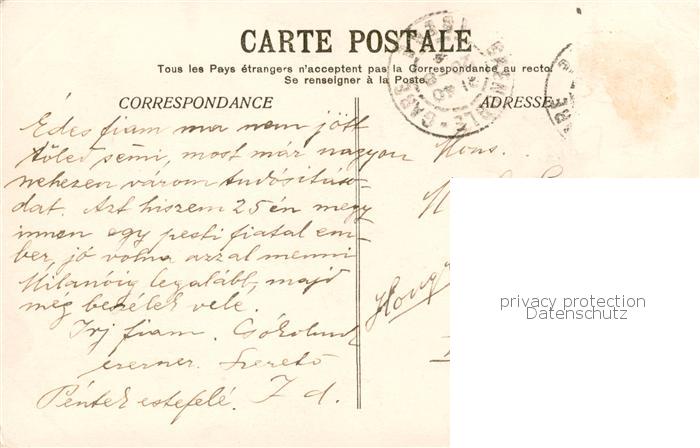 CARTE POSTALE
Tous les Pays étrangers n'acceptent pas la Correspondance au recto.
Se renseigner à la Poste.
CORRESPONDANCE
ADRESSE
Édes fiam ma nem jött
tőled semi, most már nagyon
nehezen várom tudósitáso-
dat. Azt hiszem 25 én megy
innen egy pesti fiatal em-
ber, jó volna azzal menni
Milanóig legalább, majd
még beszélek vele.
Irj fiam. Csókolunk
ezerszer. Szerető
Péntek estefelé. I d.
Mons.
Hong
privacy protection
Datenschutz
GARE